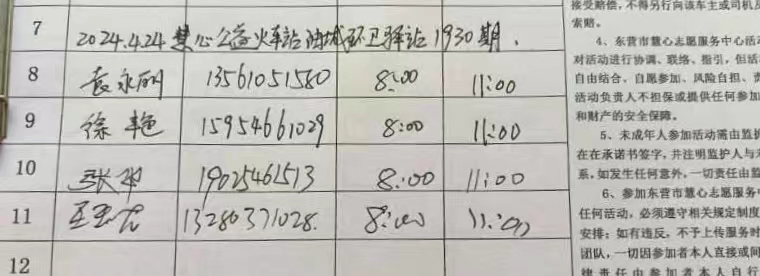 7 2024.4.24 慧心公益火车站 环卫驿站 1930期.
8 袁永丽 13561051580 8:00 11:00
9 徐艳 15954661029 8:00 11:00
10 19025461513 8:00 11:00
11 13280371028. 8:00 11:00
12
接受赔偿，不得另行向该车主或司机
索赔。
4、东营市慧心志愿服务中心活
对活动进行协调、联络、指引，但活
自由结合、自愿参加、风险自担、责
活动负责人不担保或提供任何参加
和财产的安全保障。
5、未成年人参加活动需由监护
在在承诺书签字，并注明监护人与未
系，如发生任何意外，一切责任由监
6、参加东营市慧心志愿服务中
任何活动，必须遵守相关规定制度
安排；如有违反，不予上传服务时
团队，一切因参加者本人直接或间
律责任由参加者本人自行